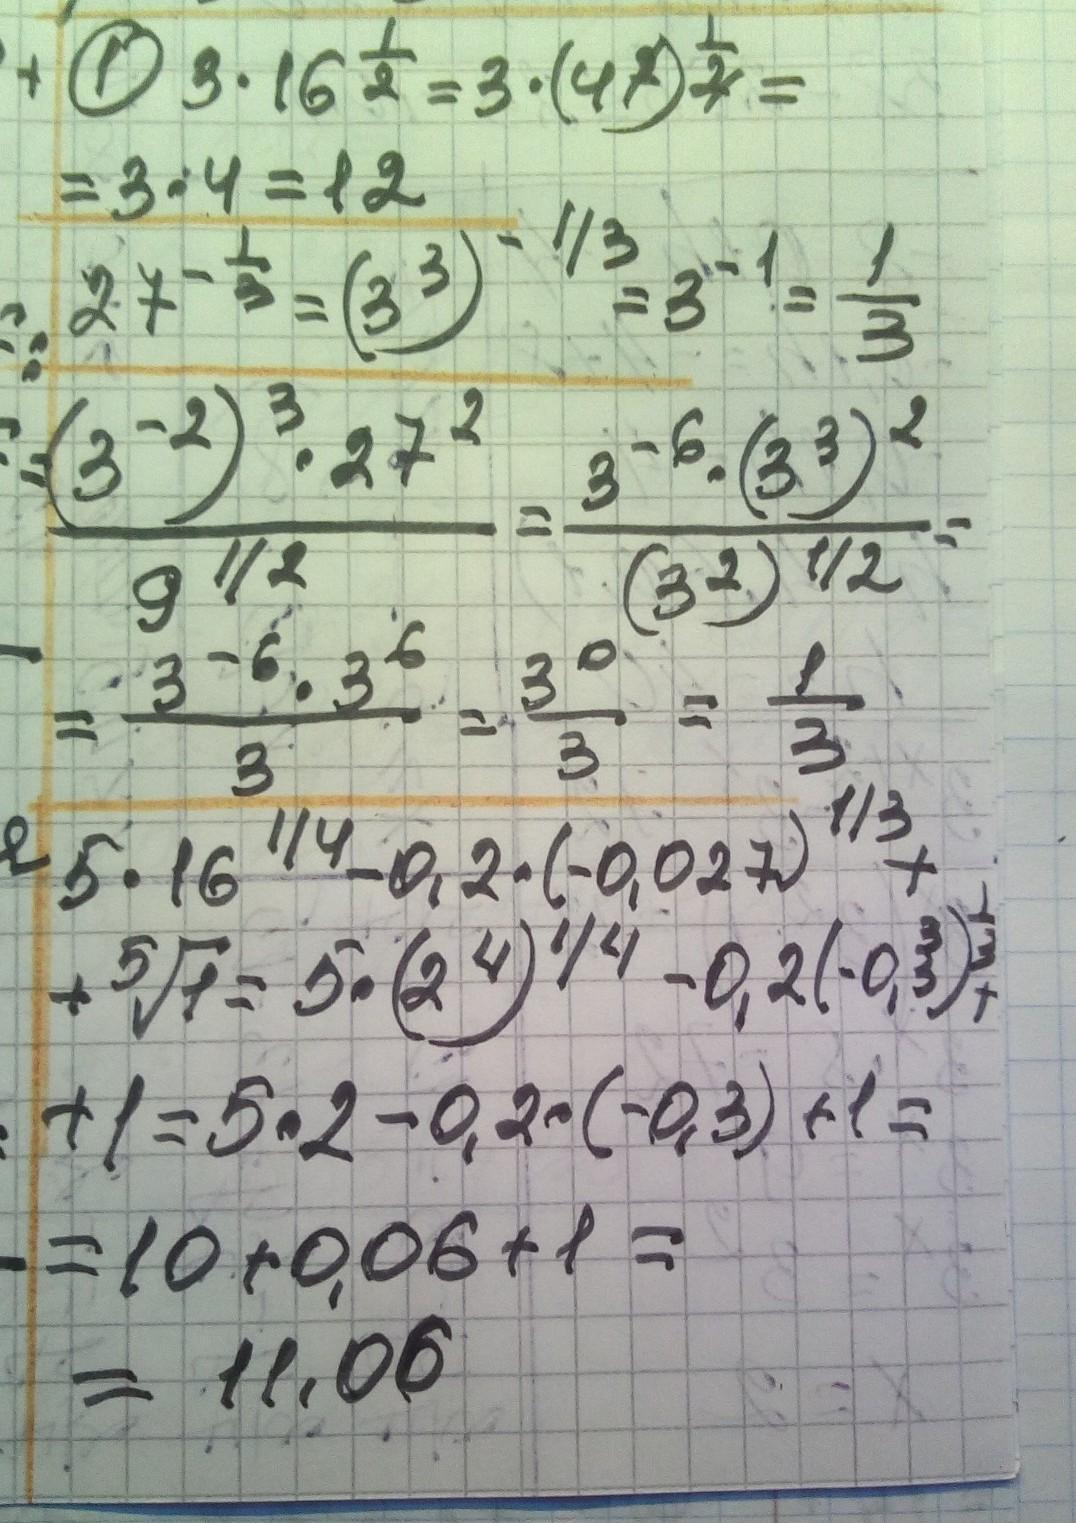 ① 3·16^(1/2) = 3·(4^2)^(1/2) =
= 3·4 = 12
27^(-1/3) = (3^3)^(-1/3) = 3^(-1) = 1/3
((3^(-2))^3 · 27^2)/(9^(1/2)) = (3^(-6) · (3^3)^2)/((3^2)^(1/2)) =
= (3^(-6) · 3^6)/3 = 3^0/3 = 1/3
5·16^(1/4) - 0,2·(-0,027)^(1/3) +
+ ⁵√1 = 5·(2^4)^(1/4) - 0,2(-0,3^3)^(1/3) +
+ 1 = 5·2 - 0,2·(-0,3) + 1 =
= 10 + 0,06 + 1 =
= 11,06